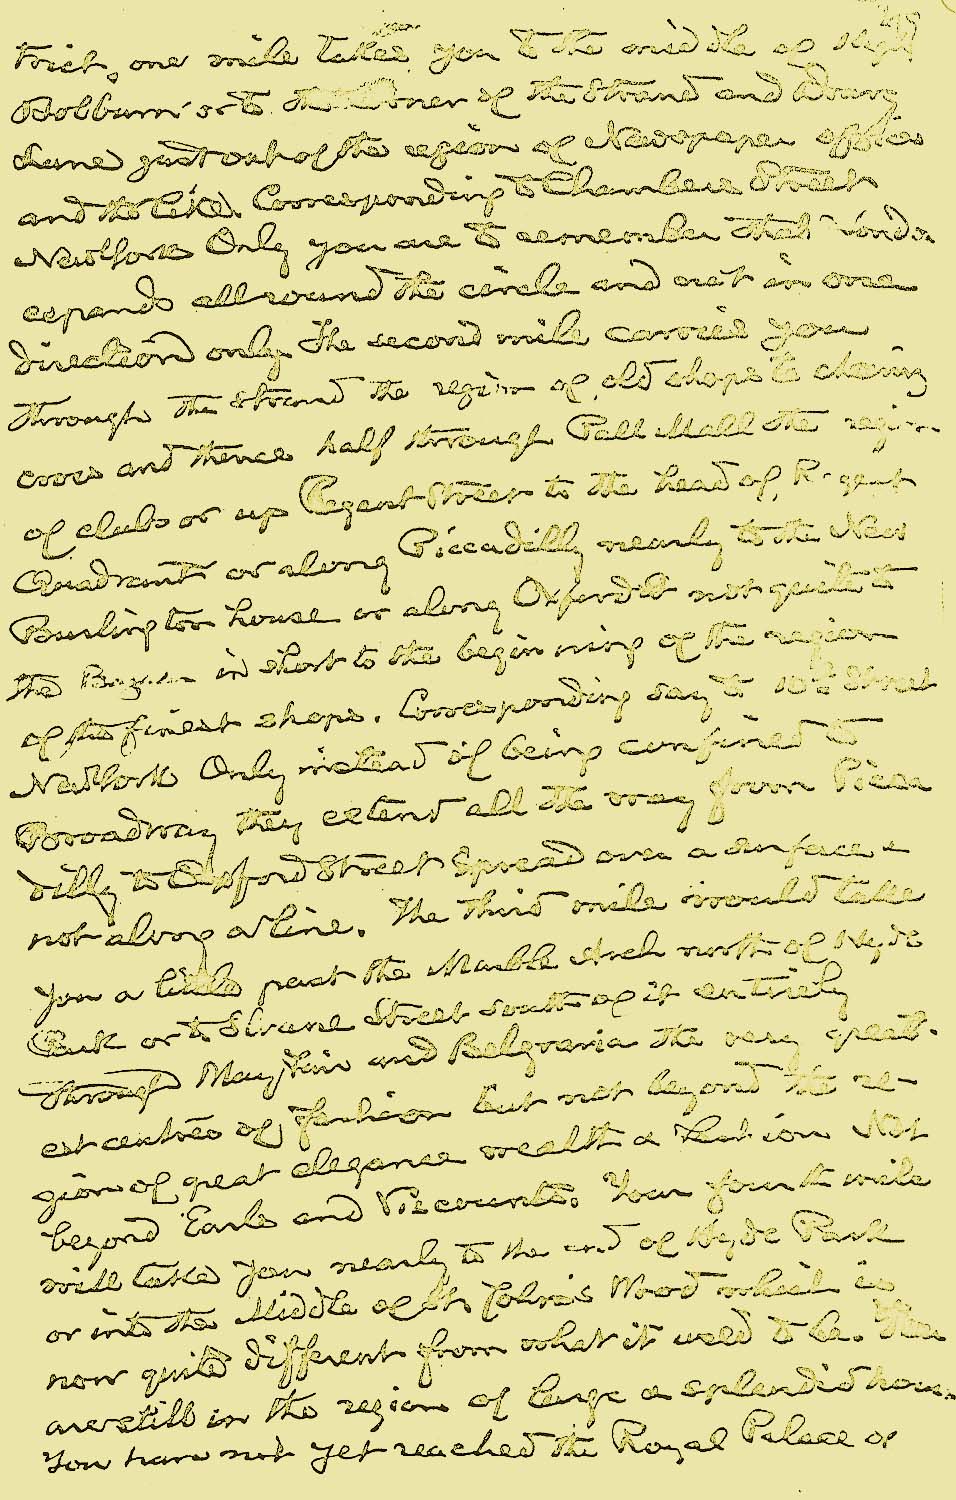 trict, one mile takes you to the middle of High
Holburn or to the corner of the Strand and Drury
Lane just out of the region of Newspaper offices
and the like. Corresponding to Chambers Street
New York Only you are to remember that London
expands all round the circle and not in one
direction only. The second mile carries you
through the Strand the region of old shops to Charing
cross and thence half through Pall Mall the region
of clubs or up Regent Street to the head of Regent
Quadrant or along Piccadilly nearly to the New
Burlington house or along Oxford St not quite to
the Bazaar in short to the beginning of the region
of the finest shops. Corresponding say to 10th Street
New York Only instead of being confined to
Broadway they extend all the way from Picca
dilly to Oxford Street Spread over a surface &
not along a line. The third mile would take
you a little past the Marble Arch north of Hyde
Park or to Sloane Street south of it entirely
through Mayfair and Belgravia the very great-
est centres of fashion but not beyond the re-
gion of great elegance wealth & fashion Not
beyond Earls and Viscounts. Your fourth mile
will take you nearly to the end of Hyde Park
or into the Middle of St John's Wood which is
now quite different from what it used to be. You
are still in the region of large & splendid houses.
You have not yet reached the Royal Palace of